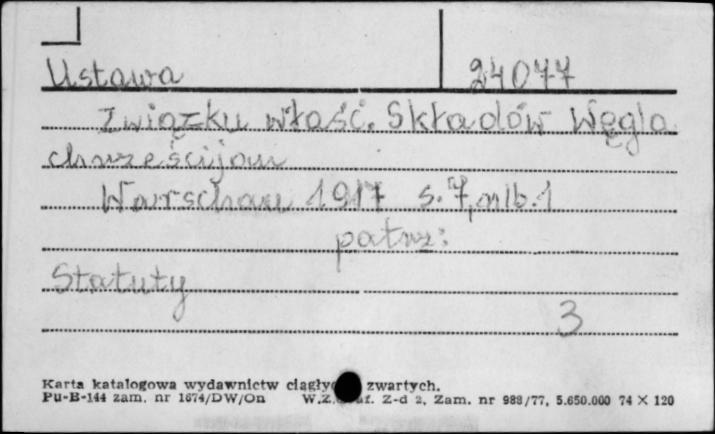 Ustawa 24077
Związku włość. Składów Węgla
chrześcijan
Warschau 1917 s. 7, nlb. 1
patrz:
Statuty
3
Karta katalogowa wydawnictw ciągłych zwartych.
Pu-B-144 zam. nr 1674/DW/On W.Z. Z-d 2, Zam. nr 988/77, 5.650.000 74 X 120